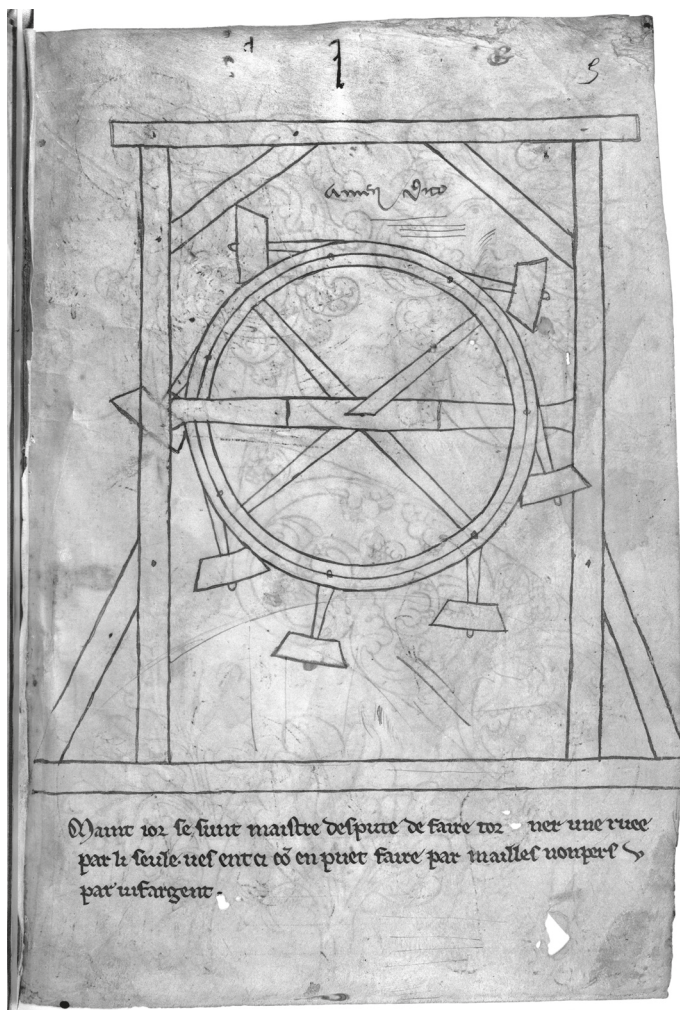 5
amen dico
Maint ior se sunt maistre despute de faire tor ner une ruee
par li seule. ues ent ci cō en puet faire par mailles nonpers
par uif argent.